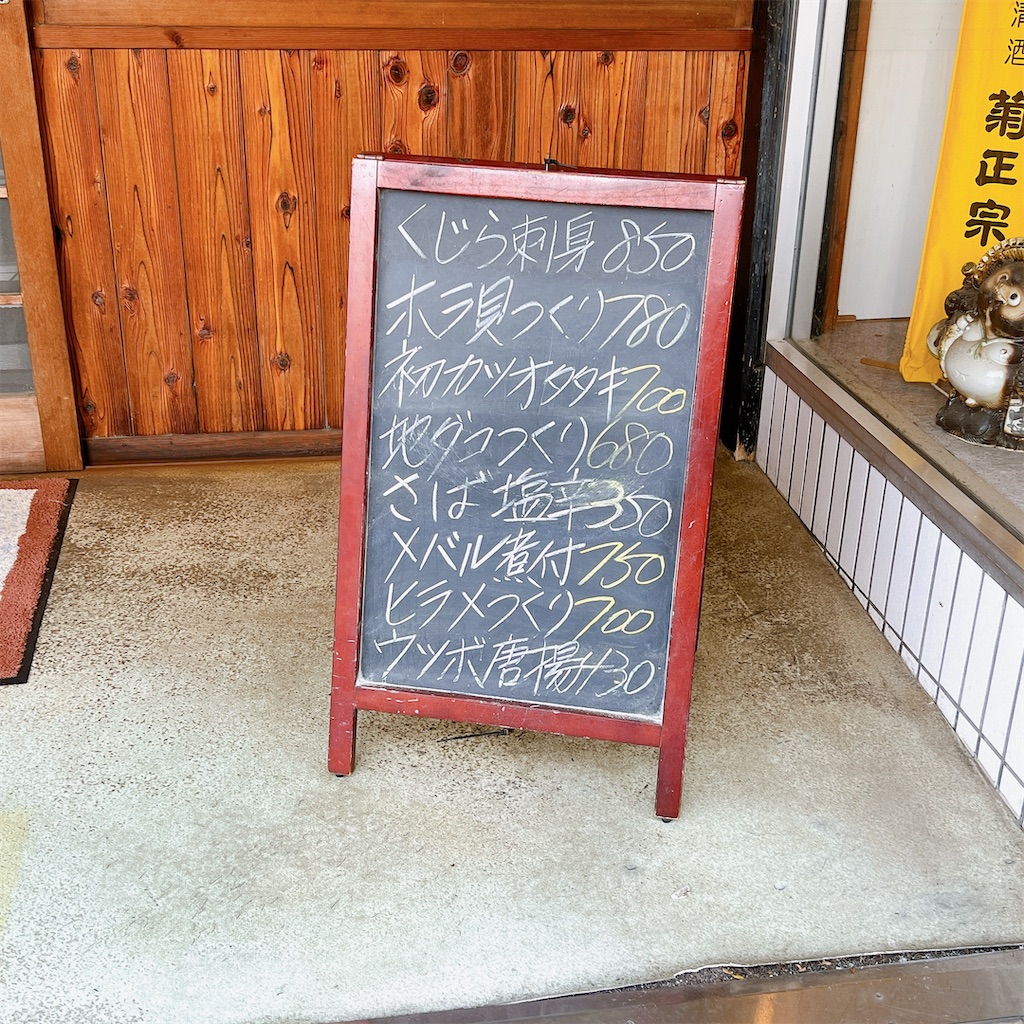 くじら刺身 850
ホラ貝つくり 780
初カツオタタキ 700
地ダコつくり 680
さば塩辛 350
メバル煮付 750
ヒラメつくり 700
ウツボ唐揚 430
清酒
菊正宗